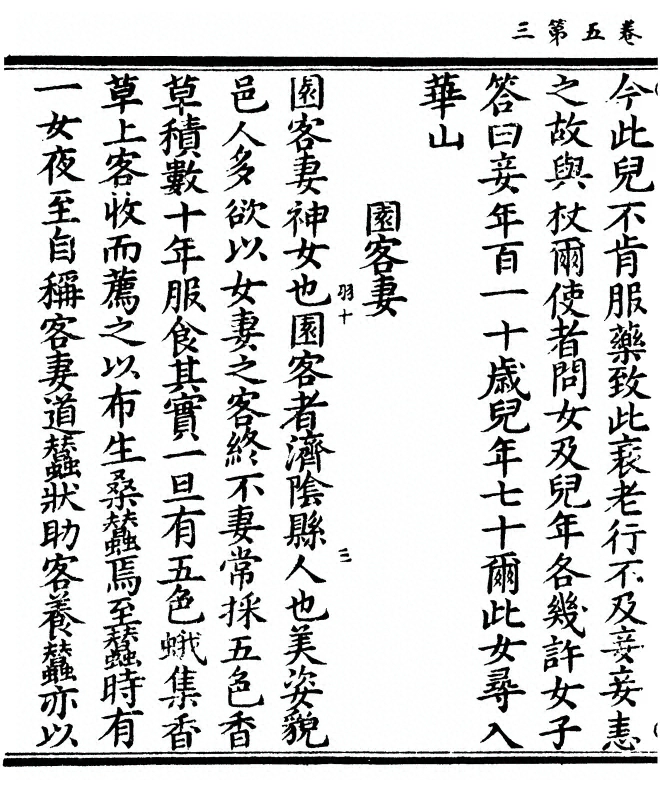 卷五第三
今此兒不肯服藥致此衰老行不及妾妾恚
之故與杖爾使者問女及兒年各幾許女子
答曰妾年百一十歲兒年七十爾此女尋入
華山
園客妻
園客妻神女也園客者濟陰縣人也美姿貌
羽十
三
邑人多欲以女妻之客終不妻常採五色香
草積數十年服食其實一旦有五色蛾集香
草上客收而薦之以布生桑蠶焉至蠶時有
一女夜至自稱客妻道蠶狀助客養蠶亦以